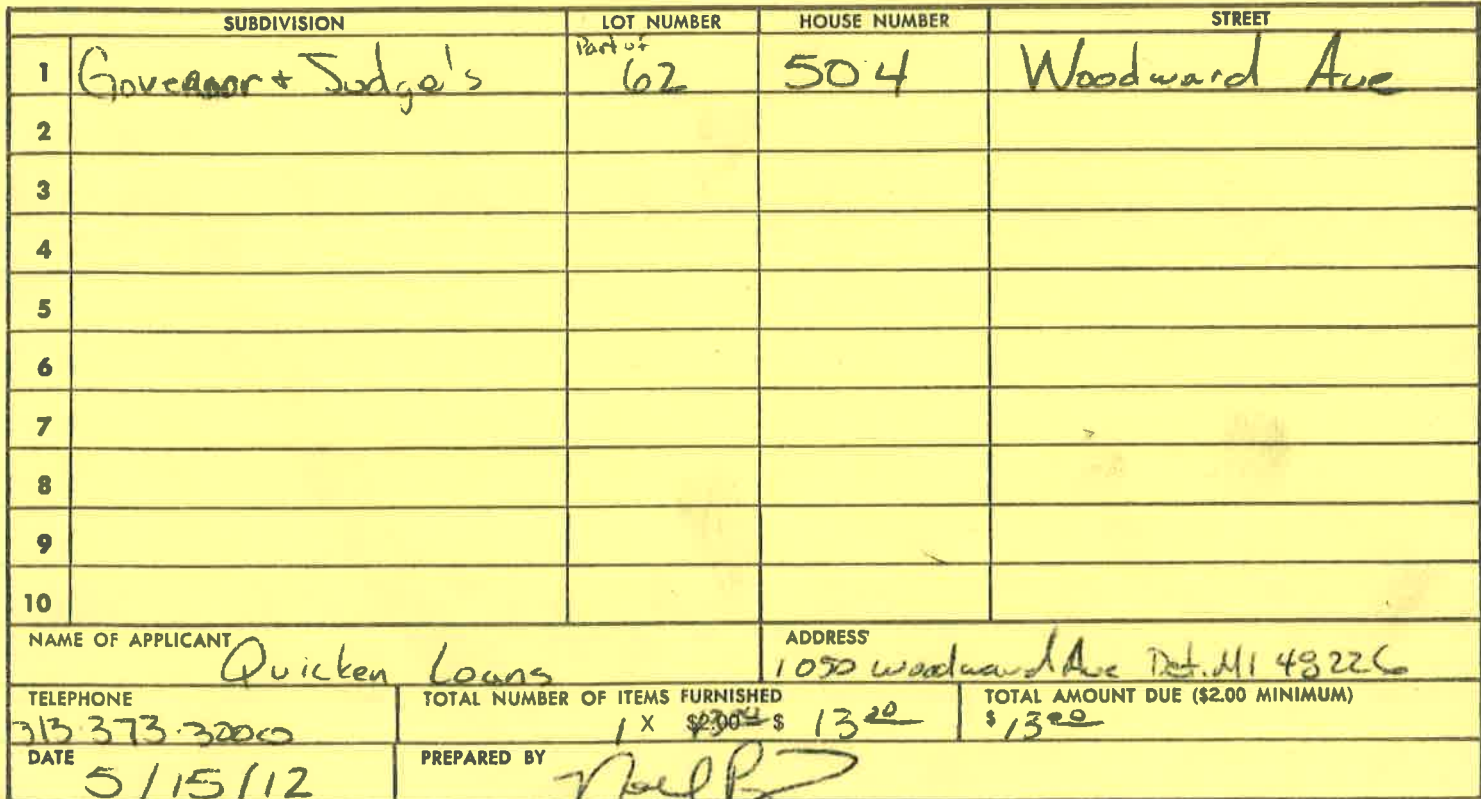 SUBDIVISION LOT NUMBER HOUSE NUMBER STREET
1 Governor + Judge's Part of 62 504 Woodward Ave
2
3
4
5
6
7
8
9
10
NAME OF APPLICANT Quicken Loans ADDRESS 1050 Woodward Ave Det. MI 48226
TELEPHONE TOTAL NUMBER OF ITEMS FURNISHED TOTAL AMOUNT DUE ($2.00 MINIMUM)
313.373.3000 1 X $2.00 $ 13 00 $ 13 00
DATE PREPARED BY
5/15/12